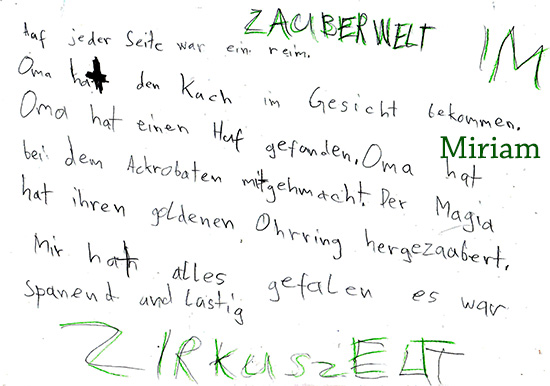 ZAUBERWELT IM
Auf jeder Seite war ein reim.
Oma hat den Kuch im Gesicht bekommen.
Oma hat einen Huf gefunden. Oma hat
Miriam
bei dem Ackrobaten mitgehmacht. Der Magia
hat ihren goldenen Ohrring hergezaubert.
Mir hat alles gefalen es war
Spanend und lustig
ZIRKUSZELT